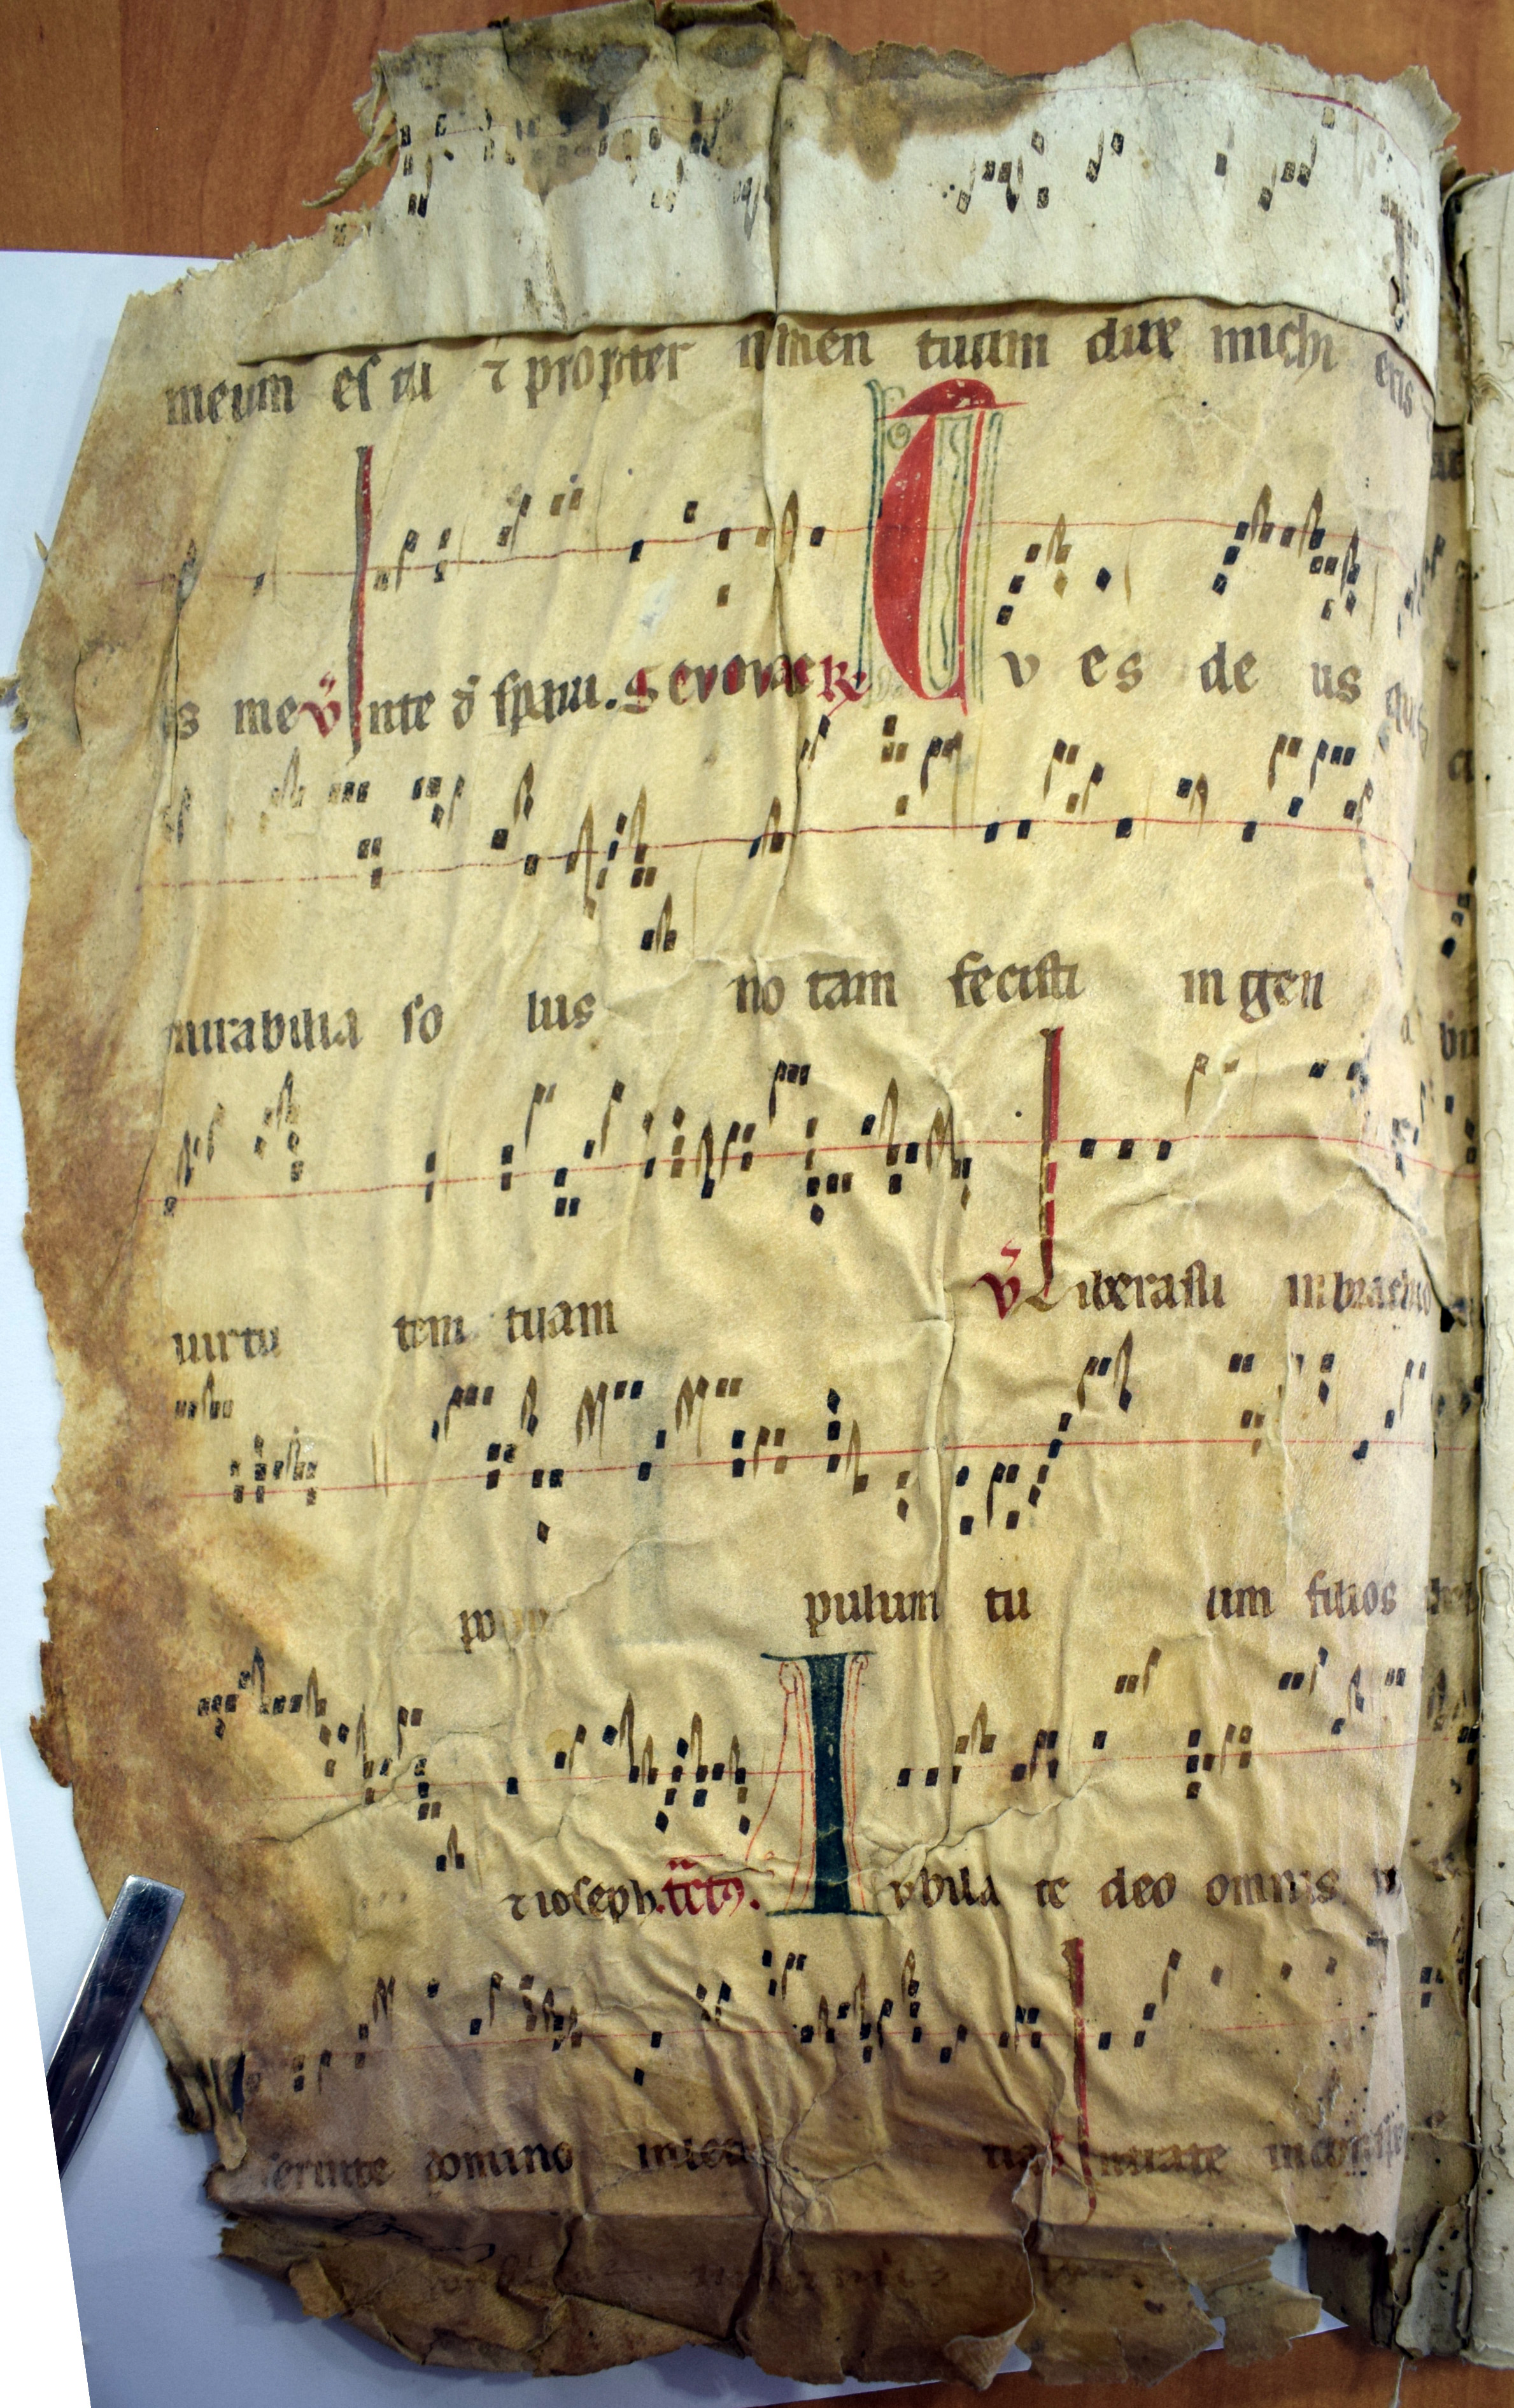 meum es tu ⁊ propter nomen tuum dux michi eris
s me v̄ Inte d̄ spaui. Seuouae R̷ TV es de us qui
mirabilia so lus no tam fecisti in gen
uirtu tem tuam v̄ Liberasti in brachio
po pulum tu um filios
⁊ ioseph. tctꝰ. Iubila te deo omnis
seruite domino in leti tia Intrate in conspe